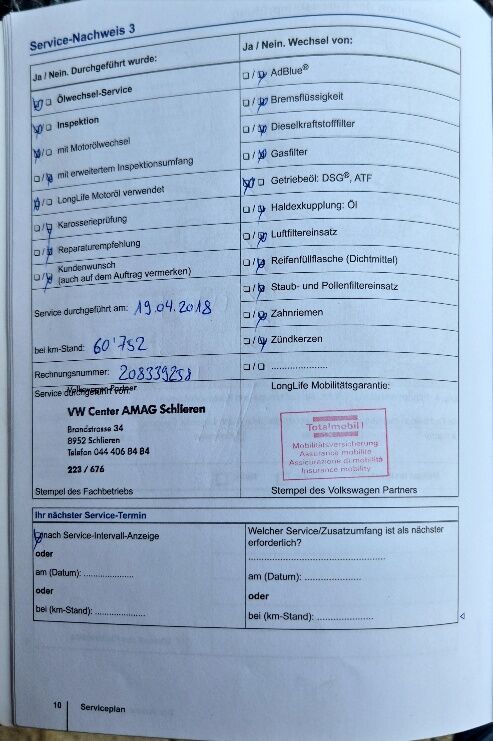 Service-Nachweis 3
Ja / Nein. Durchgeführt wurde:
Ölwechsel-Service
Inspektion
mit Motorölwechsel
mit erweitertem Inspektionsumfang
LongLife Motoröl verwendet
Karosserieprüfung
Reparaturempfehlung
Kundenwunsch
(auch auf dem Auftrag vermerken)
Service durchgeführt am: 19.04.2018
bei km-Stand: 60'752
Rechnungsnummer: 208339258
Service durchgeführt von:
Volkswagen Partner
VW Center AMAG Schlieren
Brandstrasse 34
8952 Schlieren
Telefon 044 406 84 84
223 / 676
Stempel des Fachbetriebs
Ja / Nein. Wechsel von:
AdBlue®
Bremsflüssigkeit
Dieselkraftstofffilter
Gasfilter
Getriebeöl: DSG®, ATF
Haldexkupplung: Öl
Luftfiltereinsatz
Reifenfüllflasche (Dichtmittel)
Staub- und Pollenfiltereinsatz
Zahnriemen
Zündkerzen
LongLife Mobilitätsgarantie:
Totalmobil!
Mobilitätsversicherung
Assurance mobilité
Assicurazione di mobilità
Insurance mobility
Stempel des Volkswagen Partners
Ihr nächster Service-Termin
nach Service-Intervall-Anzeige
oder
am (Datum): ....................
oder
bei (km-Stand): ....................
Welcher Service/Zusatzumfang ist als nächster
erforderlich?
am (Datum): ....................
oder
bei (km-Stand): ....................
10 Serviceplan